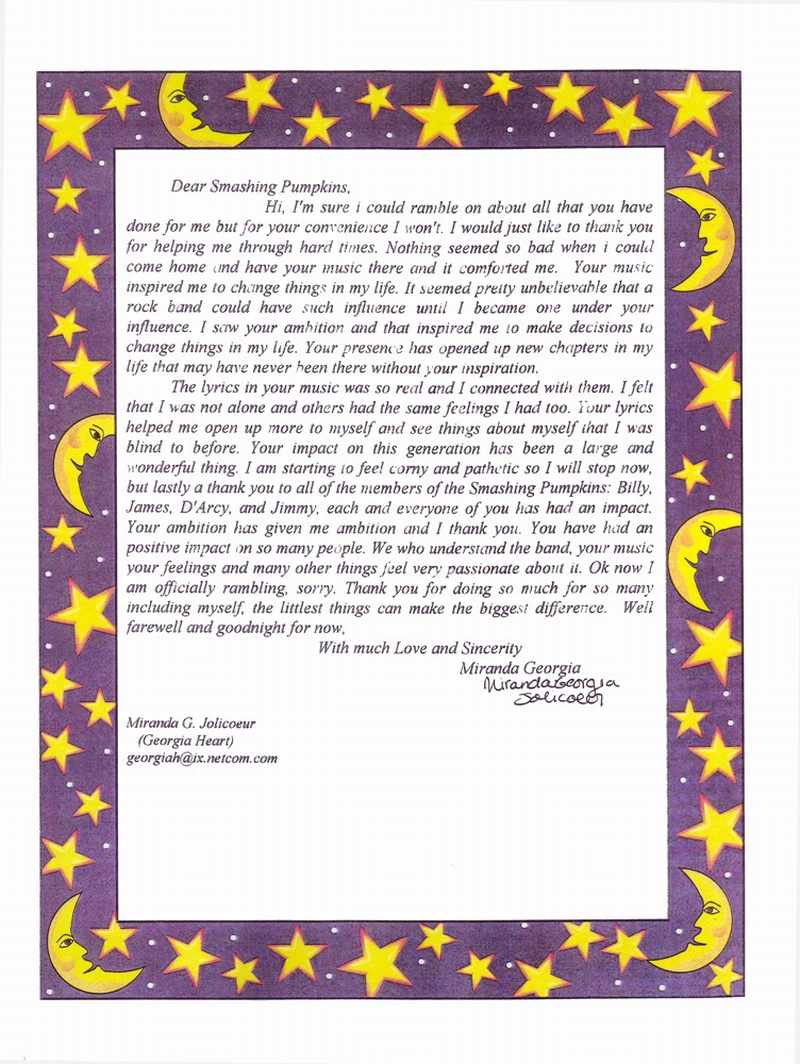 Dear Smashing Pumpkins,
Hi, I'm sure i could ramble on about all that you have
done for me but for your convenience I won't. I would just like to thank you
for helping me through hard times. Nothing seemed so bad when i could
come home and have your music there and it comforted me. Your music
inspired me to change things in my life. It seemed pretty unbelievable that a
rock band could have such influence until I became one under your
influence. I saw your ambition and that inspired me to make decisions to
change things in my life. Your presence has opened up new chapters in my
life that may have never been there without your inspiration.
The lyrics in your music was so real and I connected with them. I felt
that I was not alone and others had the same feelings I had too. Your lyrics
helped me open up more to myself and see things about myself that I was
blind to before. Your impact on this generation has been a large and
wonderful thing. I am starting to feel corny and pathetic so I will stop now,
but lastly a thank you to all of the members of the Smashing Pumpkins: Billy,
James, D'Arcy, and Jimmy, each and everyone of you has had an impact.
Your ambition has given me ambition and I thank you. You have had an
positive impact on so many people. We who understand the band, your music
your feelings and many other things feel very passionate about it. Ok now I
am officially rambling, sorry. Thank you for doing so much for so many
including myself, the littlest things can make the biggest difference. Well
farewell and goodnight for now,
With much Love and Sincerity
Miranda Georgia
Miranda Georgia
Jolicoeur
Miranda G. Jolicoeur
(Georgia Heart)
georgiah@ix.netcom.com